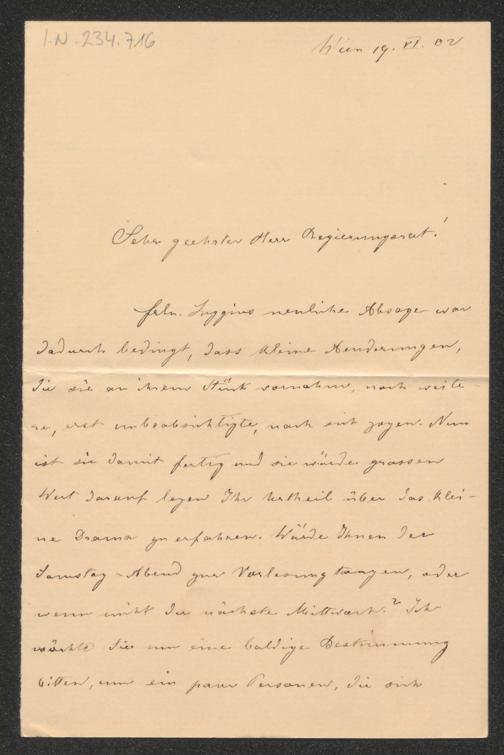 I.N. 234.716
Wien 19. VI. 02
Sehr geehrter Herr Regierungsrat!
Frln. neuliche Absage war
dadurch bedingt, dass kleine Aenderungen,
die sie an ihrem Stück vornahm, noch weite-
re, erst unbeabsichtigte, nach sich zogen. Nun
ist sie damit fertig und sie würde grossen
Wert darauf legen Ihr Urtheil über das klei-
ne Drama zu erfahren. Würde Ihnen der
Samstag-Abend zur Vorlesung taugen, oder
wenn nicht der nächste Mittwoch? Ich
möchte Sie um eine baldige Bestimmung
bitten, um ein paar Personen, die sich